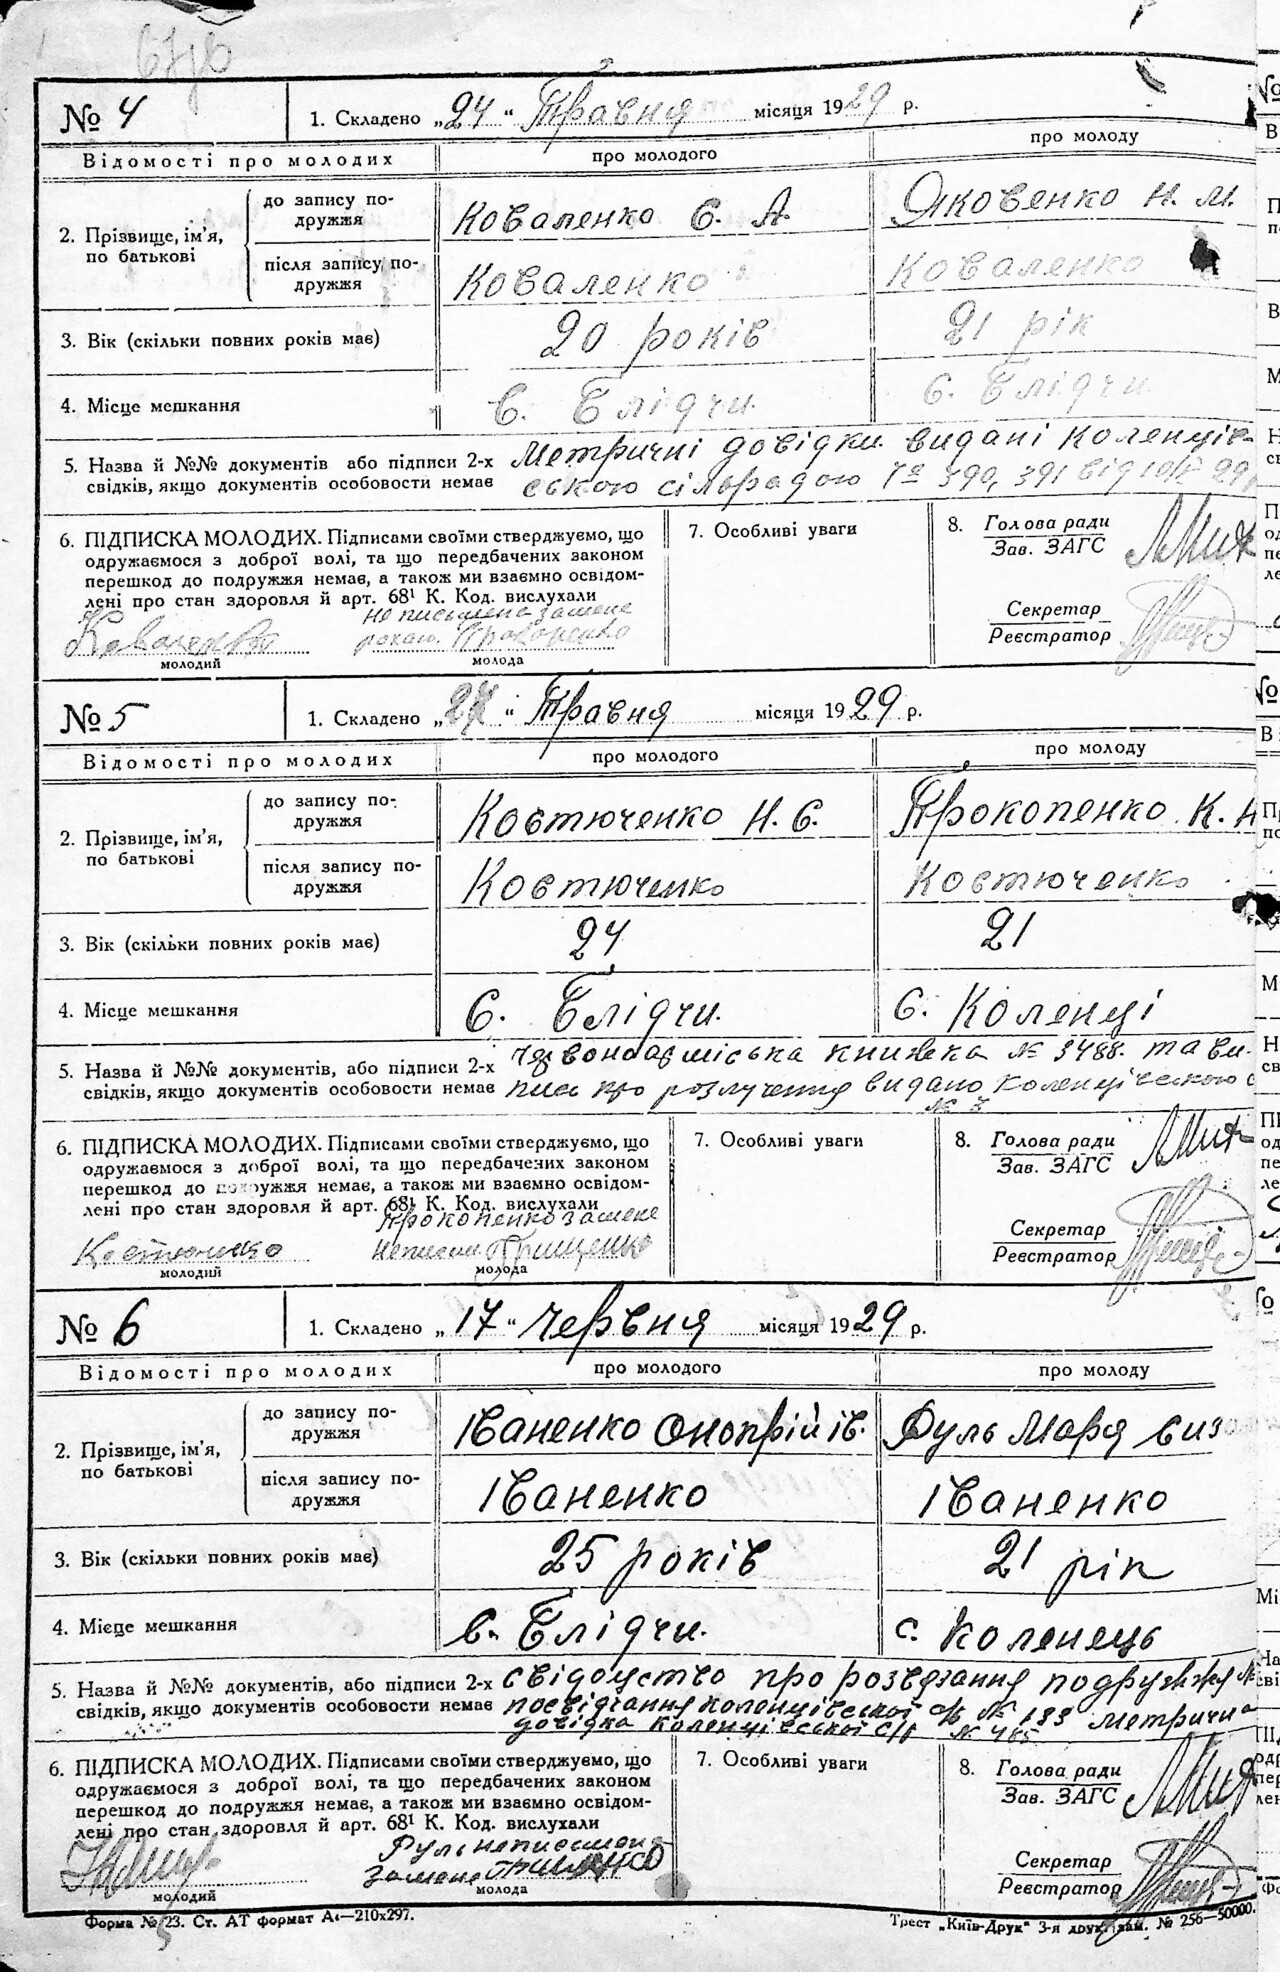 № 4
1. Складено „24“ Травня місяця 1929 р.
Відомості про молодих
про молодого
про молоду
2. Прізвище, ім'я, по батькові
до запису по-
дружжя
Коваленко Є. А.
Яковенко Н. М.
після запису по-
дружжя
Коваленко
Коваленко
3. Вік (скільки повних років має)
20 років
21 рік
4. Місце мешкання
с. Блідчи.
с. Блідчи.
5. Назва й №№ документів або підписи 2-х
свідків, якщо документів особовости немає
Метричні довідки видані Коленців-
ською сільрадою № 390, 391 від
6. ПІДПИСКА МОЛОДИХ. Підписами своїми стверджуємо, що
одружаємося з доброї волі, та що передбачених законом
перешкод до подружжя немає, а також ми взаємно освідом-
лені про стан здоровля й арт. 68¹ К. Код. вислухали
не письмена замене
Прокопенко
молодий
молода
7. Особливі уваги
8. Голова ради
Зав. ЗАГС
Секретар
Реєстратор
№ 5
1. Складено „24“ Травня місяця 1929 р.
Відомості про молодих
про молодого
про молоду
2. Прізвище, ім'я,
по батькові
до запису по-
дружжя
Костюченко Н. Є.
Прокопенко К. Н
після запису по-
дружжя
Костюченко
Костюченко
3. Вік (скільки повних років має)
24
21
4. Місце мешкання
с. Блідчи.
с. Коленці
5. Назва й №№ документів, або підписи 2-х
свідків, якщо документів особовости немає
Червоноармійська книжка № 3488. та ви-
пись про розлучення видано Коленціческою с
№ 3
6. ПІДПИСКА МОЛОДИХ. Підписами своїми стверджуємо, що
одружаємося з доброї волі, та що передбачених законом
перешкод до подружжя немає, а також ми взаємно освідом-
лені про стан здоровля й арт. 68¹ К. Код. вислухали
Прокопенко замене
Костюченко
неписмен Грищенко
молодий
молода
7. Особливі уваги
8. Голова ради
Зав. ЗАГС
Секретар
Реєстратор
№ 6
1. Складено „17“ Червня місяця 1929 р.
Відомості про молодих
про молодого
про молоду
2. Прізвище, ім'я,
по батькові
до запису по-
дружжя
Іваненко Онопрій Ів.
Руль Маря Сиз
після запису по-
дружжя
Іваненко
Іваненко
3. Вік (скільки повних років має)
25 років
21 рік
4. Місце мешкання
с. Блідчи.
с. Коленець
5. Назва й №№ документів, або підписи 2-х
свідків, якщо документів особовости немає
свідоцтво про розвязання подружжя №
посвідчання Коленцівської с/р № 133 метрична
довідка Коленцівської с/р № 465
6. ПІДПИСКА МОЛОДИХ. Підписами своїми стверджуємо, що
одружаємося з доброї волі, та що передбачених законом
перешкод до подружжя немає, а також ми взаємно освідом-
лені про стан здоровля й арт. 68¹ К. Код. вислухали
Руль неписмена
замене Грищенко
молодий
молода
7. Особливі уваги
8. Голова ради
Зав. ЗАГС
Секретар
Реєстратор
Форма № 23. Ст. АТ формат А4—210х297.
Трест „Київ-Друк“ 3-я друк. зам. № 256—50000.